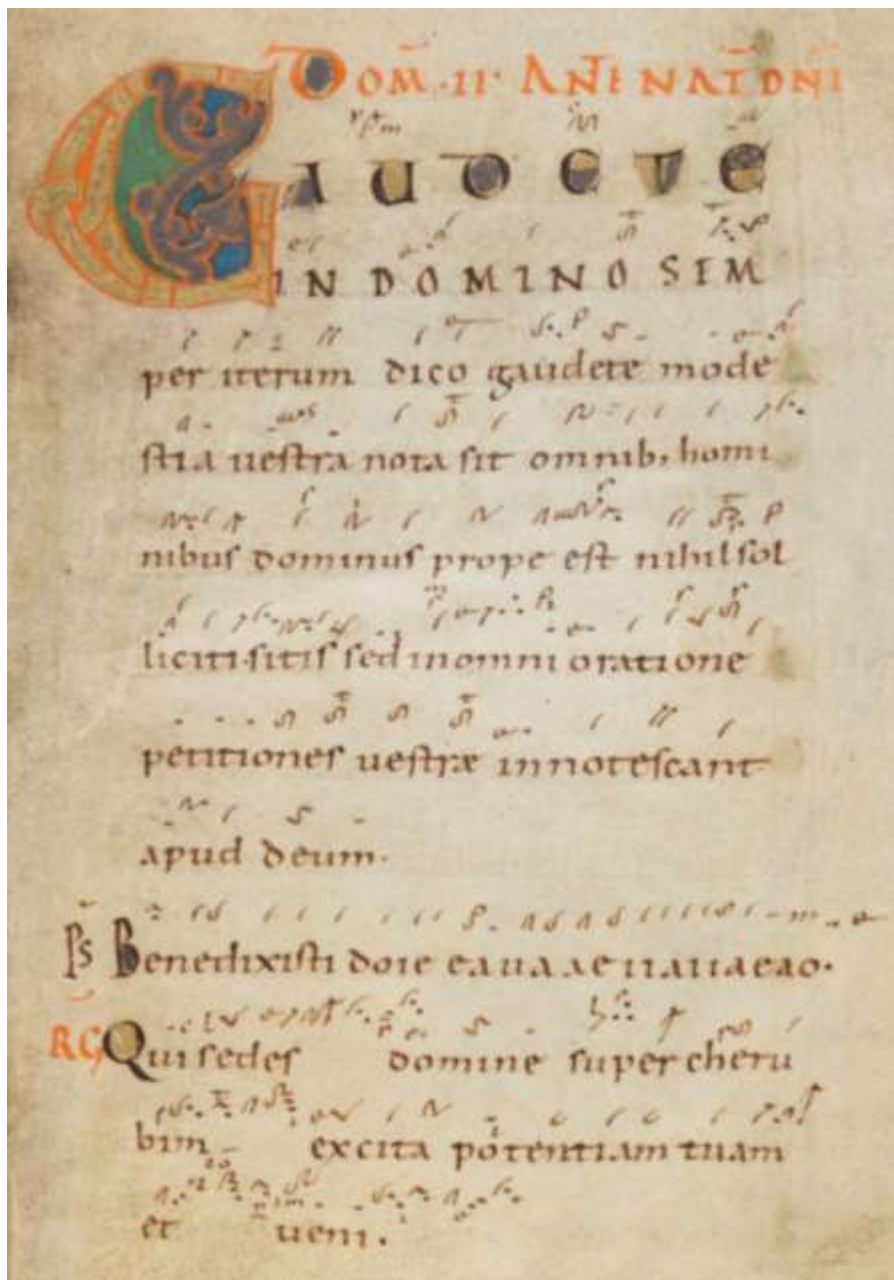 DOM̅ · II · ANT̅E NAT̅ DN̅I
GAUDETE
IN DOMINO SEM
per iterum dico gaudete mode
stia uestra nota sit omnib; homi
nibus dominus prope est nihil sol
liciti sitis sed in omni oratione
petitiones uestræ innotescant
apud deum.
Ps Benedixisti doie eaua ae iiauaeao.
RG Qui sedes domine super cheru
bim excita potentiam tuam
et ueni.